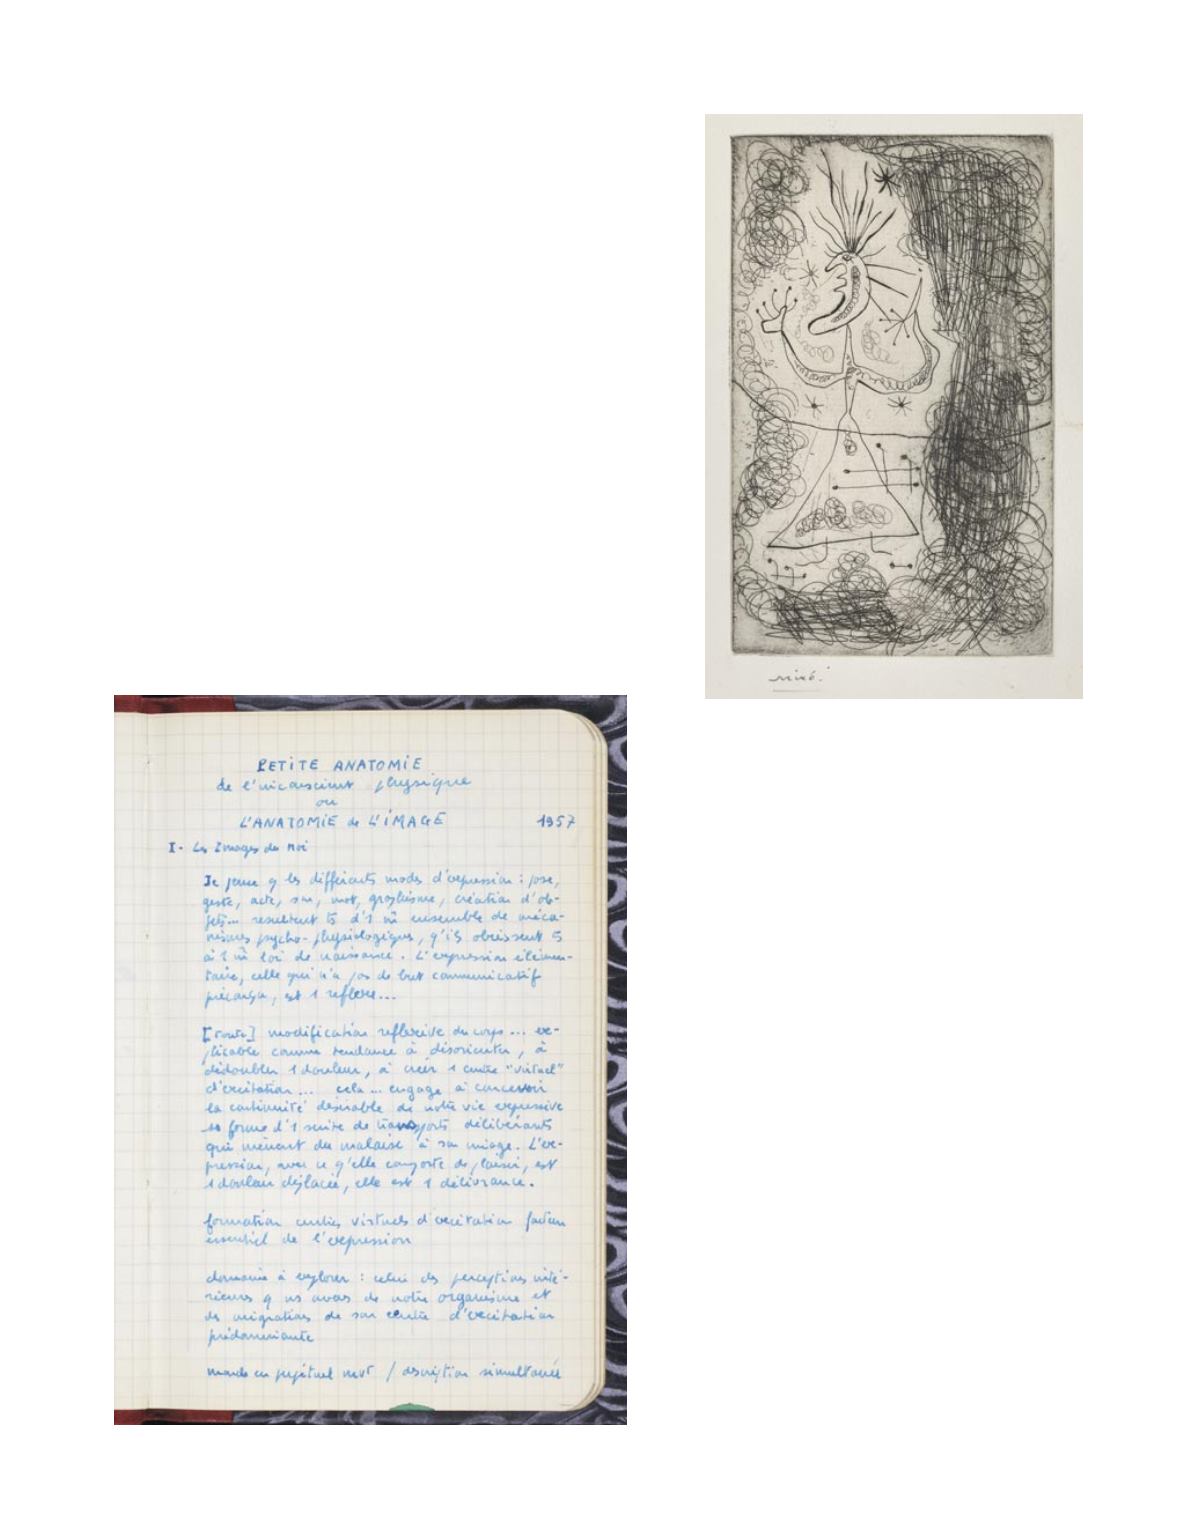 Miró.
PETITE ANATOMIE
de l'inconscient physique
ou
L'ANATOMIE de L'IMAGE 1957
I. Les Images du moi
Je pense q les différents modes d'expression : pose,
geste, acte, son, mot, graphisme, création d'ob-
jets... resultent ts d'1 m̂ ensemble de méca-
nismes psycho-physiologiques, q'ils obéissent ts
à 1 m̂ loi de naissance. L'expression élémen-
taire, celle qui n'a pas de but communicatif
préconçu, est 1 réflexe...
[toute] modification réflexive du corps... ex-
plicable comme tendance à désorienter, à
dédoubler 1 douleur, à créer 1 centre "virtuel"
d'excitation... cela... engage à concevoir
la continuité désirable de notre vie expressive
ss forme d'1 suite de transports délibérants
qui mènent du malaise à son image. L'ex-
pression, avec ce q'elle comporte de plaisir, est
1 douleur déplacée, elle est 1 délivrance.
formation centres virtuels d'excitation facteur
essentiel de l'expression
domaine à explorer : celui des perceptions inté-
rieures q ns avons de notre organisme et
des migrations de son centre d'excitation
prédominante
monde en perpétuel mvt / description simultanée